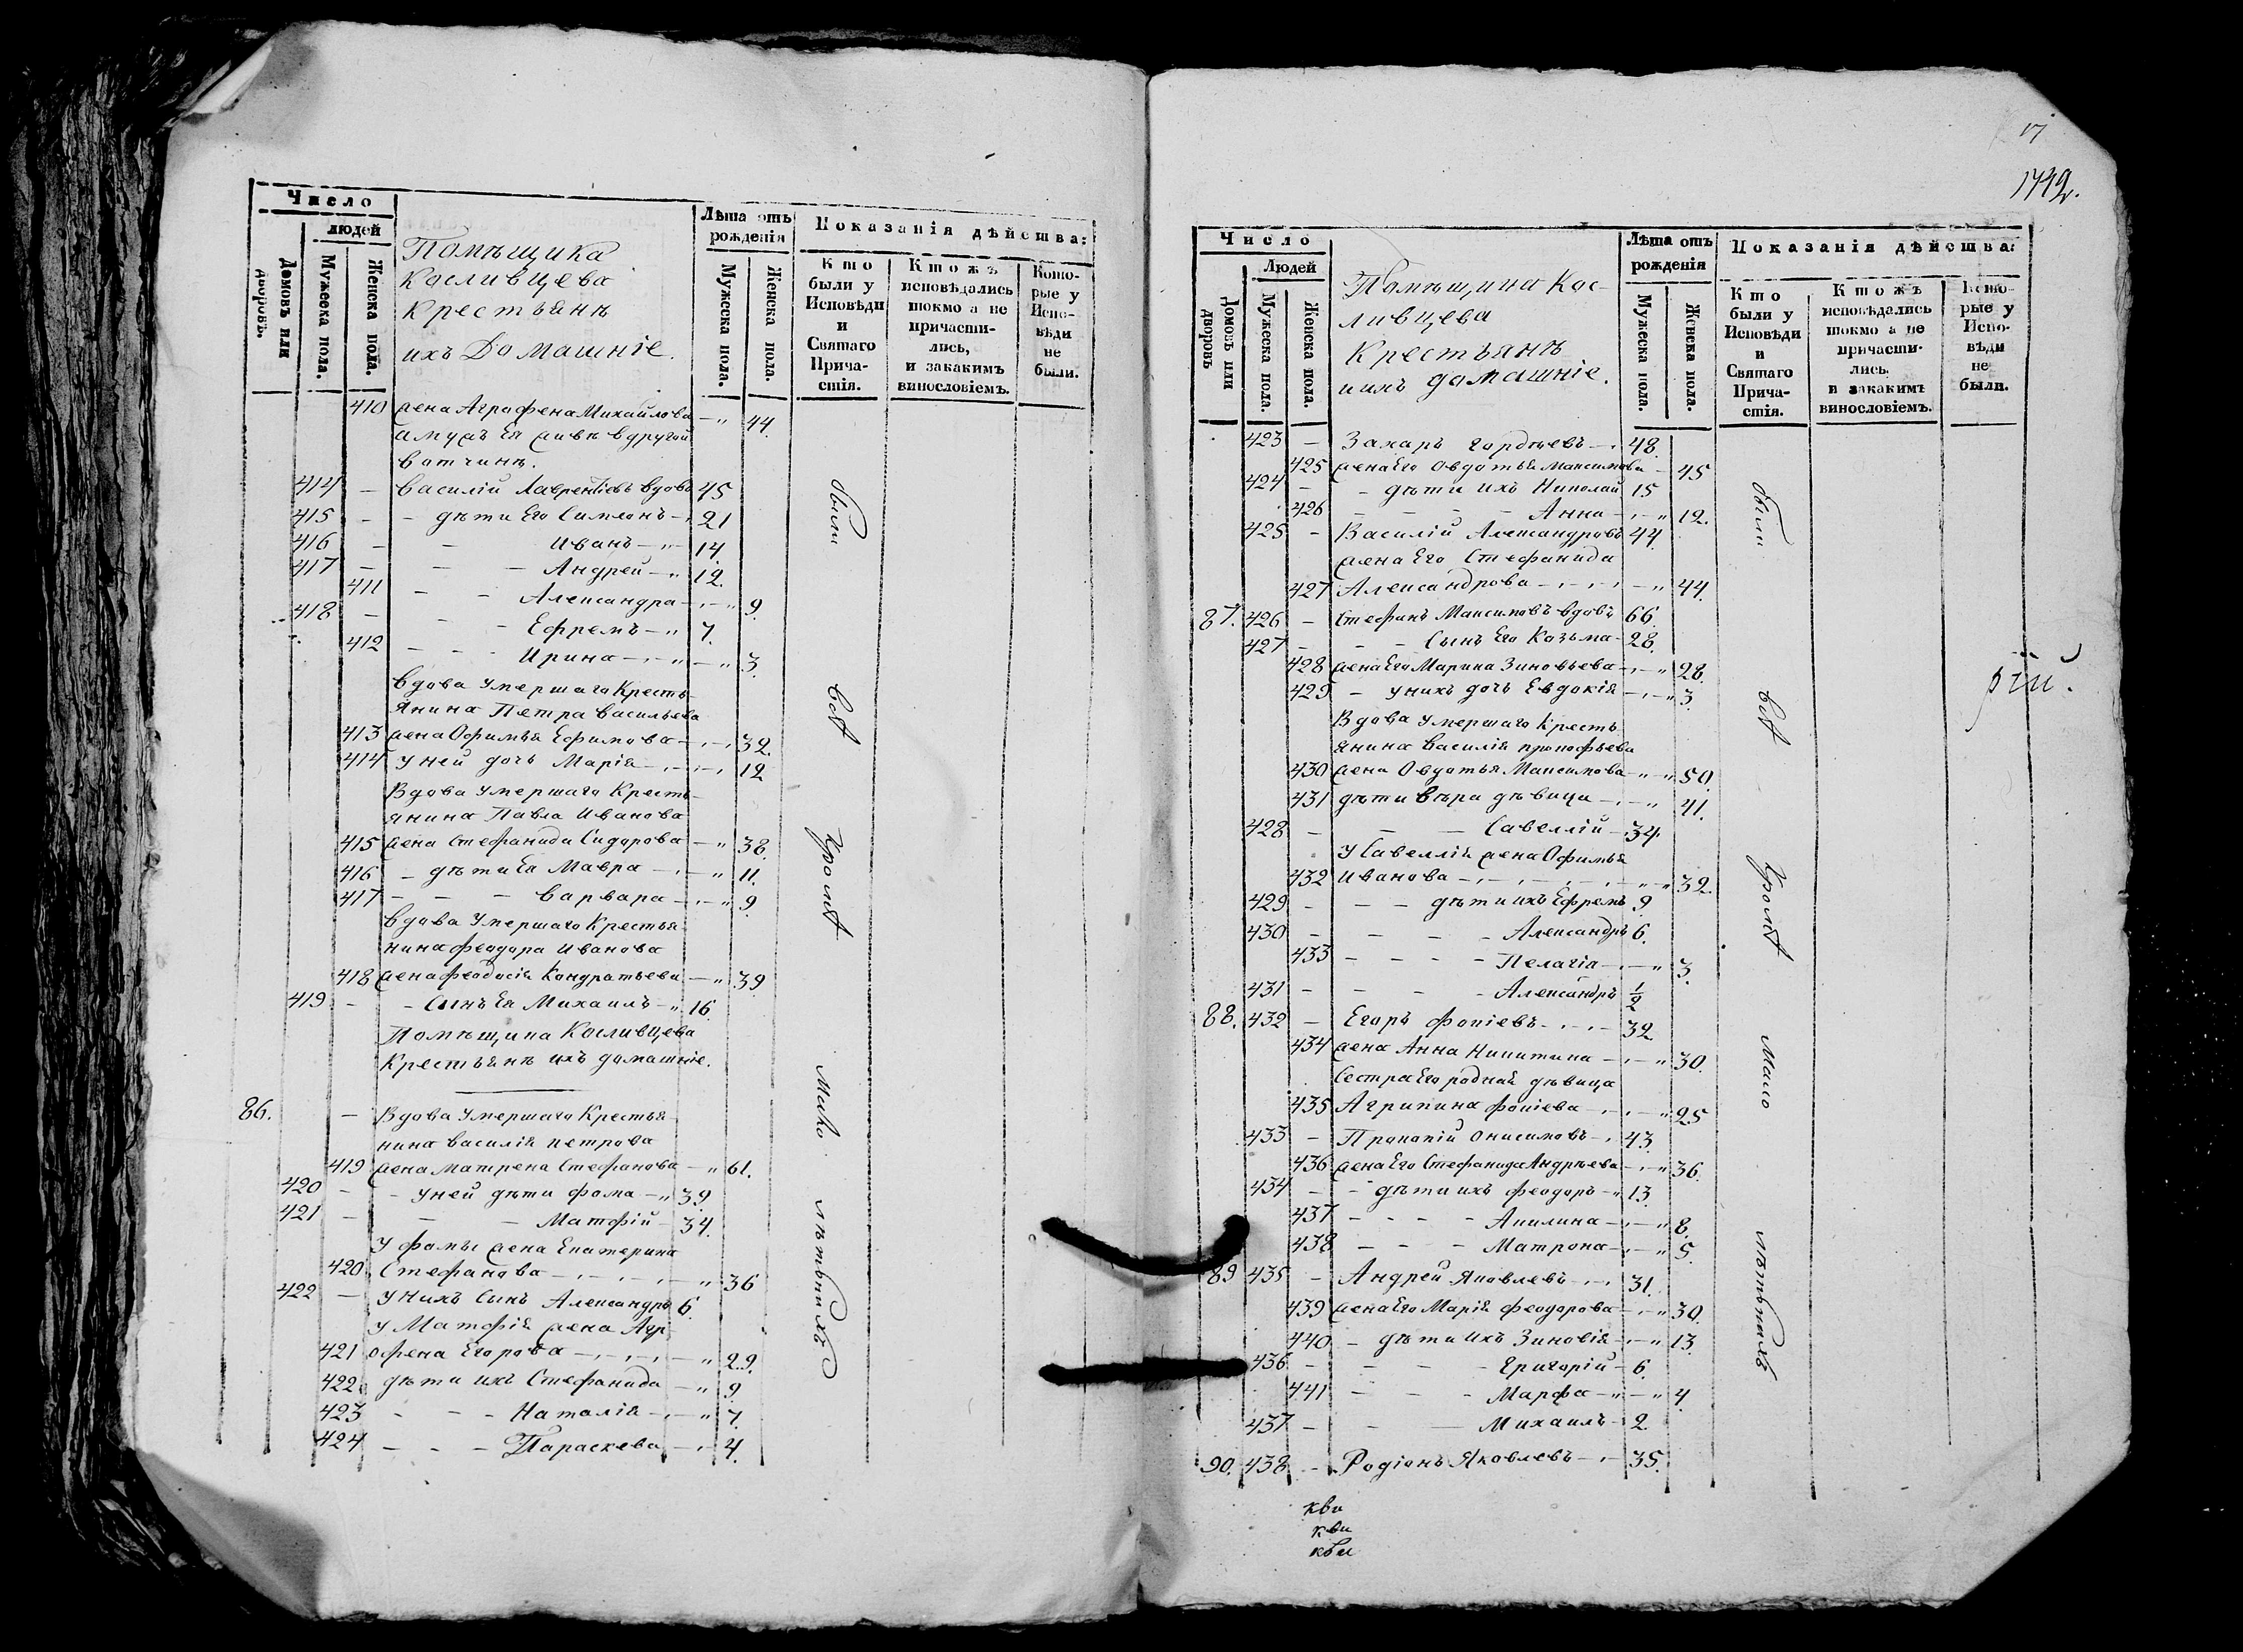 Число
людей
Домовъ или дворовъ.
Мужеска пола.
Женска пола.
Помѣщика
Косливцева
Крестьянѣ
ихъ Домашніе.
Лѣта отъ рожденія
Мужеска пола.
Женска пола.
Показанія дѣйства:
Кто были у Исповѣди и Святаго Причастія.
Ктожъ исповѣдались токмо а не причастились, и закакимъ винословіемъ.
Которые у Исповѣди не были.
410 жена Аграфена Михайлова — 44.
а мужъ Ея живъ в другой
вотчинѣ.
414 — Василій Лаврентіевъ вдовъ 45
415 - - дѣти Его Симеонъ — 21
416 — — Иванъ — 14
417 — — — Андрей — 12.
411 — - Александра — 9.
418 — - - Ефремъ — 7.
412 — — - Ирина — 3.
Вдова умершаго Кресть-
янина Петра Васильева
413 жена Офимья Ефимова — 32.
414 у ней дочь Марія — 12
Вдова умершаго Кресть-
янина Павла Иванова
415 жена Стефанида Сидорова — 38.
416 - дѣти Ея Мавра — 11.
417 — — — Варвара — 9
Вдова умершаго Крестья-
нина Феодора Иванова
418 жена Феодосія Кондратьева — 39
419 — - Сынъ Ея Михаилъ — 16
Помѣщика Косливцева
Крестьянѣ ихъ домашніе.
86. — Вдова умершаго Крестья-
нина Василія Петрова
419 жена Матрена Стефанова — 61.
420 — - у ней дѣти Фома — 39.
421 — — — Матфій — 34.
у Фомы жена Екатерина
420 Стефанова — 36
422 — у нихъ Сынъ Александръ 6.
у Матфія жена Агр-
421 офена Егорова — 29.
422 дѣти ихъ Стефанида — 9
423 - - - Наталія — 7.
424 — - — Параскева — 4.
были
всѣ
кромѣ
мало
лѣтнихъ
17
1742.
Число
Людей
Домовъ или дворовъ
Мужеска пола.
Женска пола.
Помѣщика Кос-
ливцева
Крестьянѣ
и ихъ домашніе.
Лѣта отъ рожденія
Мужеска пола.
Женска пола.
Показанія дѣйства:
Кто были у Исповѣди и Святаго Причастія.
Ктожъ исповѣдались токмо а не причастились. и закакимъ винословіемъ.
Которые у Исповѣди не были.
423 — Захаръ Гордѣевъ — 48.
425 жена Его Овдотья Максимова — 45
424 — - дѣти ихъ Николай 15
426 — — — Анна — 12.
425 - Василій Александровъ 44.
жена Его Стефанида
427 Александрова — 44.
87. 426 — Стефанъ Максимовъ вдовъ 66.
427 - - - Сынъ Его Козьма — 28.
428 жена Его Марина Зиновьева — 28.
429 - у нихъ дочь Евдокія — 3.
Вдова умершаго Кресть
янина Василія Прокофьева
430 жена Овдотья Максимова — 50.
431 дѣти Вѣра дѣвица — 41.
428 — — — Савеллій — 34.
у Савеллія жена Офимья
432 Иванова — 32.
429 - — — дѣти ихъ Ефремъ 9
430 - — - - Александръ 6.
433 — - - - Пелагія — 3.
431 - - - - Александръ 1/2
88. 432 — Егоръ Фокіевъ — 32
434 жена Анна Никитина — 30.
Сестра Его родная дѣвица
435 Агрипина Фокіева — 25
433 — Прокопій Онисимовъ — 43
436 жена Его Стефанида Андрѣева — 36.
434 — - дѣти ихъ Феодоръ — 13
437 — - - - Акилина — 8.
438 — - - - Матрона — 5.
89 435 - Андрей Яковлевъ — 31.
439 жена Его Марія Феодорова — 30.
440 - дѣти ихъ Зиновія — 13.
436 — - - - Григорій — 6.
441 — - - Марфа — 4
437 — - — Михаилъ — 2.
90. 438 - Родіонъ Яковлевъ — 35.
были
всѣ
кромѣ
мало
лѣтнихъ
рій.
кви
кви
кви